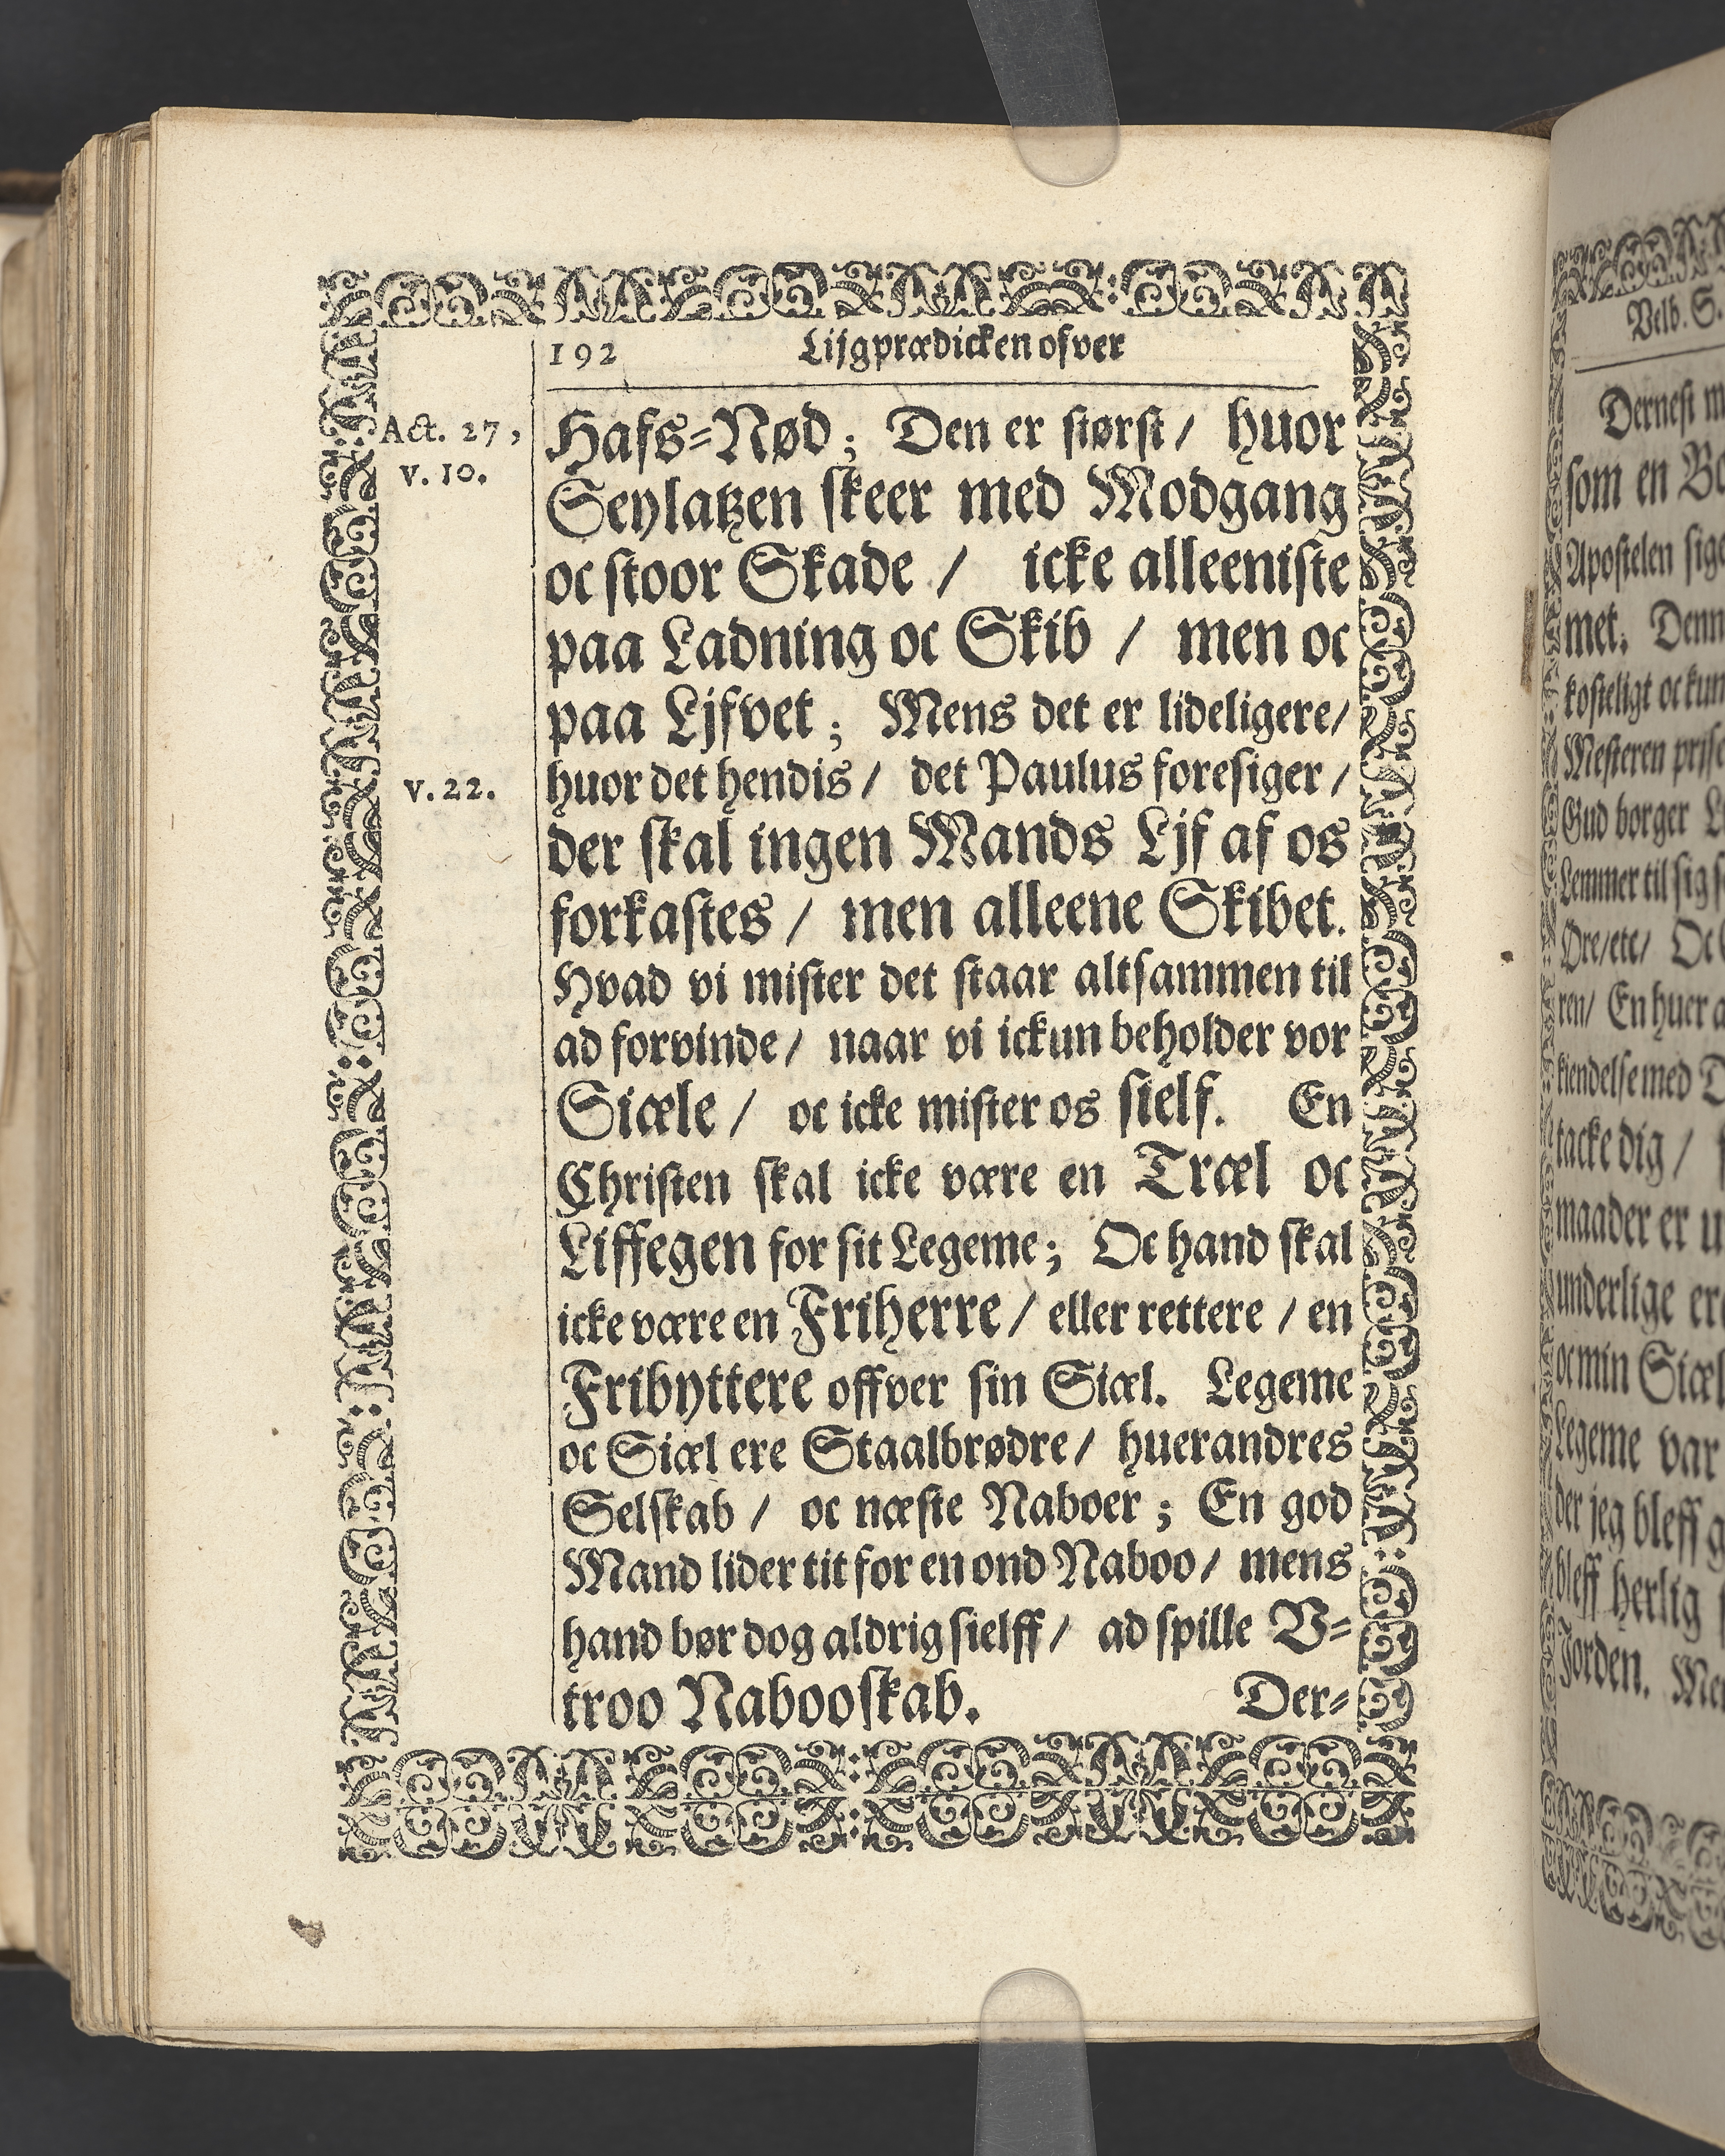 192 Lijgprædicken ofver
Act. 27,
v. 10.
Hafs=Nød; Den er størst/ huor
Seylatzen skeer med Modgang
oc stoor Skade / icke alleeniste
paa Ladning oc Skib / men oc
paa Ljfvet; Mens det er lideligere/
v. 22.
huor det hendis/ det Paulus foresiger/
der skal ingen Mands Ljf af os
forkastes / men alleene Skibet.
Hvad vi mister det staar altsammen til
ad forvinde/ naar vi ickun beholder vor
Siæle / oc icke mister os sielf. En
Christen skal icke være en Træl oc
Liffegen for sit Legeme; Oc hand skal
icke være en Friherre / eller rettere / en
Fribyttere offver sin Siæl. Legeme
oc Siæl ere Staalbrødre/ huerandres
Selskab / oc næste Naboer; En god
Mand lider tit for en ond Naboo/ mens
hand bør dog aldrig sielff/ ad spille V=
troo Nabooskab. Der=
Velb. S.
Dernest
som en
Apostelen
met.
kosteligt oc
Mesteren
Gud borger
Lemmer til sig
Øre/etc/
ren/ En huer
kiendelse med
tacke dig /
maader er
underlige
oc min Siæl
Legeme var
der jeg bleff
bleff herlig
Jorden.